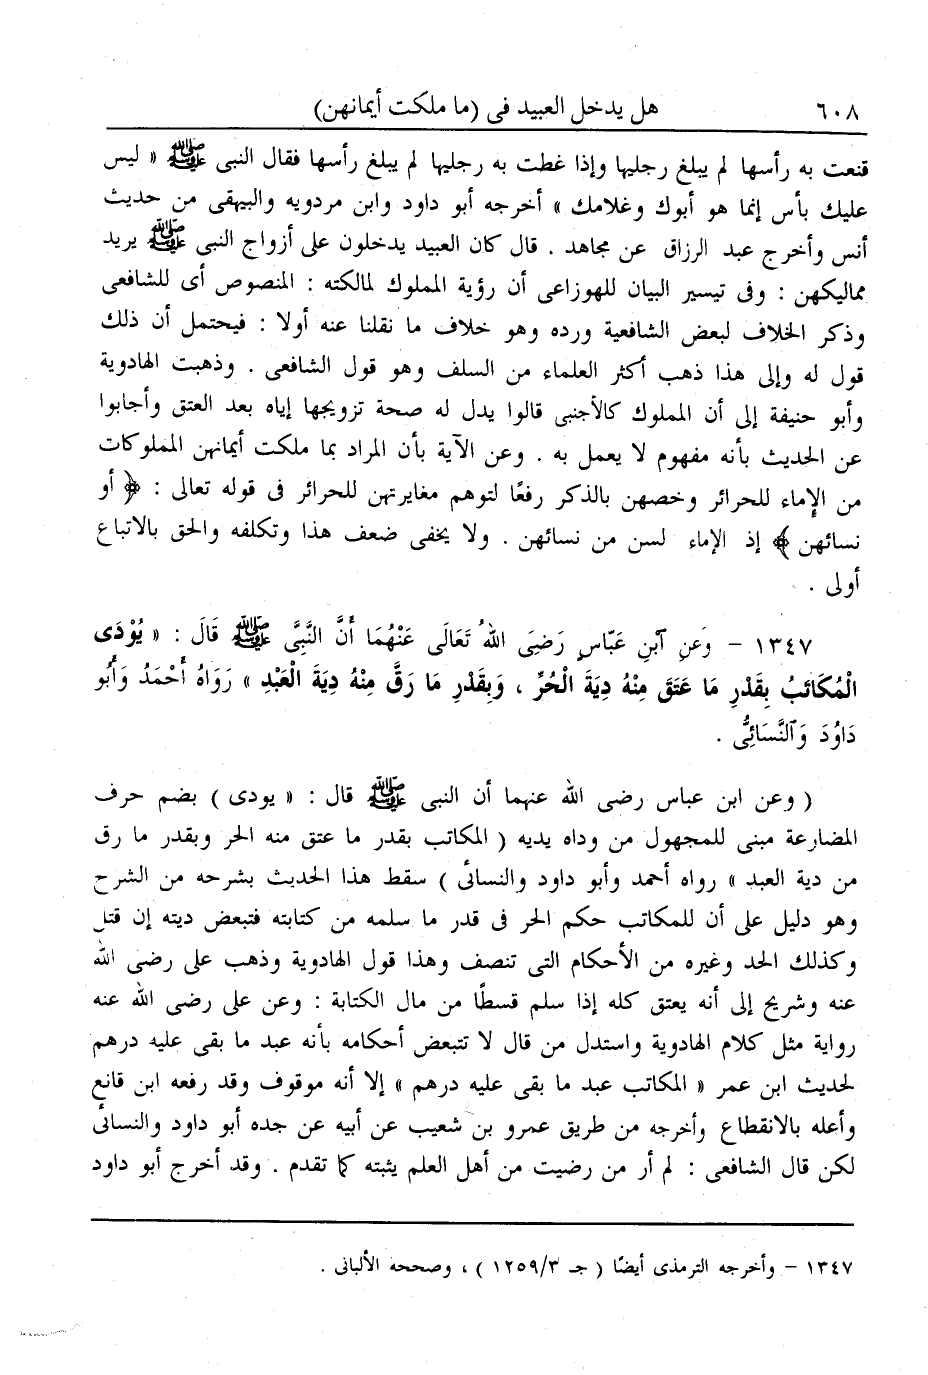 ٦٠٨ هل يدخل العبيد فى (ما ملكت أيمانهن)
قنعت به رأسها لم يبلغ رجليها وإذا غطت به رجليها لم يبلغ رأسها فقال النبى ﷺ « ليس
عليك بأس إنما هو أبوك وغلامك » أخرجه أبو داود وابن مردويه والبيهقى من حديث
أنس وأخرج عبد الرزاق عن مجاهد . قال كان العبيد يدخلون على أزواج النبى ﷺ يريد
مماليكهن : وفى تيسير البيان للهوزاعى أن رؤية المملوك لمالكته : المنصوص أى للشافعى
وذكر الخلاف لبعض الشافعية ورده وهو خلاف ما نقلنا عنه أولا : فيحتمل أن ذلك
قول له وإلى هذا ذهب أكثر العلماء من السلف وهو قول الشافعى . وذهبت الهادوية
وأبو حنيفة إلى أن المملوك كالأجنبى قالوا يدل له صحة تزويجها إياه بعد العتق وأجابوا
عن الحديث بأنه مفهوم لا يعمل به . وعن الآية بأن المراد بما ملكت أيمانهن المملوكات
من الإماء للحرائر وخصهن بالذكر رفعًا لتوهم مغايرتهن للحرائر فى قوله تعالى : ﴿ أو
نسائهن ﴾ إذ الإماء لسن من نسائهن . ولا يخفى ضعف هذا وتكلفه والحق بالاتباع
أولى .
١٣٤٧ – وَعَنِ ٱبْنِ عَبَّاسٍ رَضِيَ اللهُ تَعَالَى عَنْهُمَا أَنَّ النَّبِيَّ ﷺ قَالَ : « يُوْدَى
الْمُكَاتَبُ بِقَدْرِ مَا عَتَقَ مِنْهُ دِيَةَ الْحُرِّ ، وَبِقَدْرِ مَا رَقَّ مِنْهُ دِيَةَ الْعَبْدِ » رَوَاهُ أَحْمَدُ وَأَبُو
دَاوُدَ وَٱلنَّسَائِىُّ .
( وعن ابن عباس رضى الله عنهما أن النبى ﷺ قال : « يودى ) بضم حرف
المضارعة مبنى للمجهول من وداه يديه ( المكاتب بقدر ما عتق منه الحر وبقدر ما رق
من دية العبد » رواه أحمد وأبو داود والنسائى ) سقط هذا الحديث بشرحه من الشرح
وهو دليل على أن للمكاتب حكم الحر فى قدر ما سلمه من كتابته فتبعض ديته إن قتل
وكذلك الحد وغيره من الأحكام التى تنصف وهذا قول الهادوية وذهب على رضى الله
عنه وشريح إلى أنه يعتق كله إذا سلم قسطًا من مال الكتابة : وعن على رضى الله عنه
رواية مثل كلام الهادوية واستدل من قال لا تتبعض أحكامه بأنه عبد ما بقى عليه درهم
لحديث ابن عمر « المكاتب عبد ما بقى عليه درهم » إلا أنه موقوف وقد رفعه ابن قانع
وأعله بالانقطاع وأخرجه من طريق عمرو بن شعيب عن أبيه عن جده أبو داود والنسائى
لكن قال الشافعى : لم أر من رضيت من أهل العلم يثبته كما تقدم . وقد أخرج أبو داود
١٣٤٧ – وأخرجه الترمذى أيضًا ( جـ ١٢٥٩/٣ ) ، وصححه الألبانى .